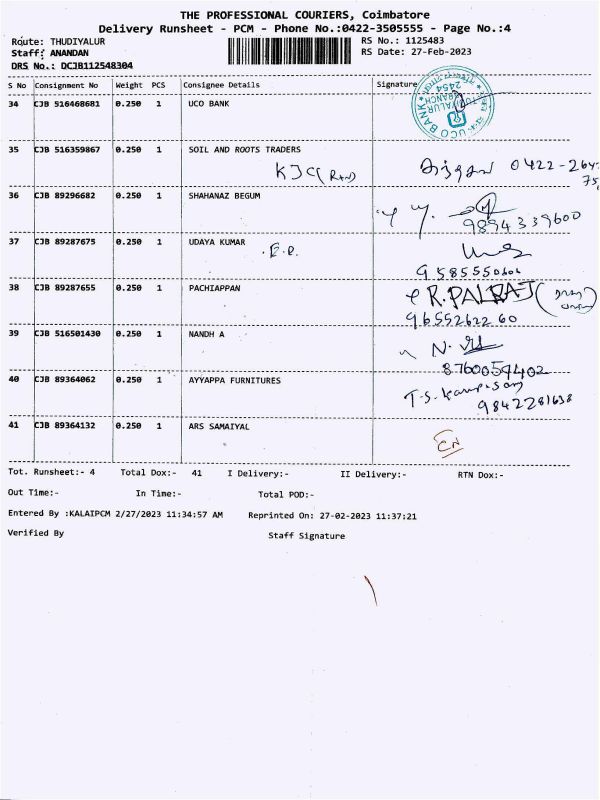 THE PROFESSIONAL COURIERS, Coimbatore
Delivery Runsheet - PCM - Phone No.:0422-3505555 - Page No.:4
Route: THUDIYALUR RS No.: 1125483
Staff: ANANDAN RS Date: 27-Feb-2023
DRS No.: DCJB112548304
S No Consignment No Weight PCS Consignee Details Signature
34 CJB 516468681 0.250 1 UCO BANK
UCO BANK
2454
35 CJB 516359867 0.250 1 SOIL AND ROOTS TRADERS
0422-264
75
36 CJB 89296682 0.250 1 SHAHANAZ BEGUM
9894339600
37 CJB 89287675 0.250 1 UDAYA KUMAR
9585550606
38 CJB 89287655 0.250 1 PACHIAPPAN R.PALRAJ
9655262260
39 CJB 516501430 0.250 1 NANDH A N.
8760059402
40 CJB 89364062 0.250 1 AYYAPPA FURNITURES T.S.
9842281638
41 CJB 89364132 0.250 1 ARS SAMAIYAL
Tot. Runsheet:- 4 Total Dox:- 41 I Delivery:- II Delivery:- RTN Dox:-
Out Time:- In Time:- Total POD:-
Entered By :KALAIPCM 2/27/2023 11:34:57 AM Reprinted On: 27-02-2023 11:37:21
Verified By Staff Signature